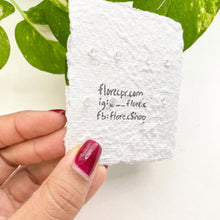 florecpr.com
ig: u__florec
fb: florec$hop